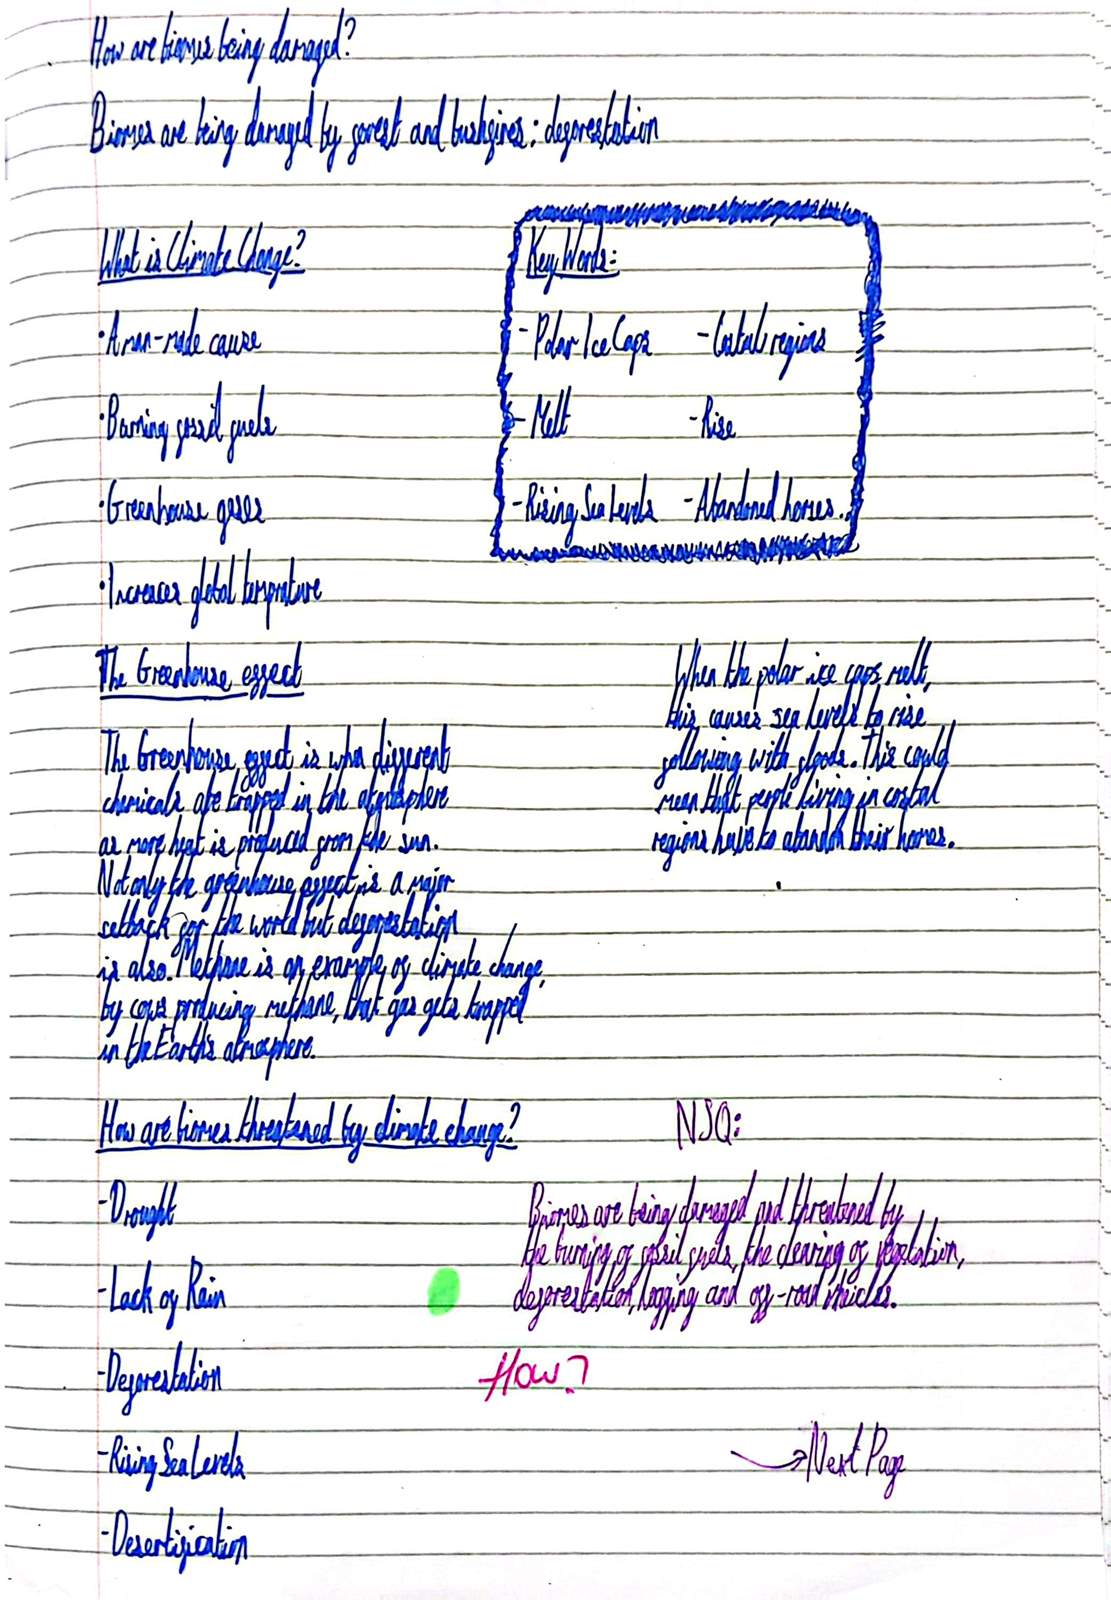 How are biomes being damaged?
Biomes are being damaged by forest and bushfires: deforestation
What is Climate Change?
• A man-made cause
• Burning fossil fuels
• Greenhouse gases
• Increases global temprature
Key Words:
- Polar Ice Caps - Costal regions
- Melt - Rise
- Rising Sea Levels - Abandoned homes.
The Greenhouse effect
The Greenhouse effect is when different
chemicals are trapped in the atmosphere
as more heat is produced from the sun.
Not only the greenhouse effect is a major
setback for the world but deforestation
is also. Methane is an example of climate change,
by cows producing methane, that gas gets trapped
in the Earth's atmosphere.
When the polar ice caps melt,
this causes sea levels to rise
following with floods. This could
mean that people living in costal
regions have to abandon their homes.
How are biomes threatened by climate change?
- Drought
- Lack of Rain
- Deforestation
- Rising Sea Levels
- Desertification
NSQ:
Biomes are being damaged and threatened by
the burning of fossil fuels, the clearing of vegetation,
deforestation, logging and off-road vehicles.
How?
→ Next Page